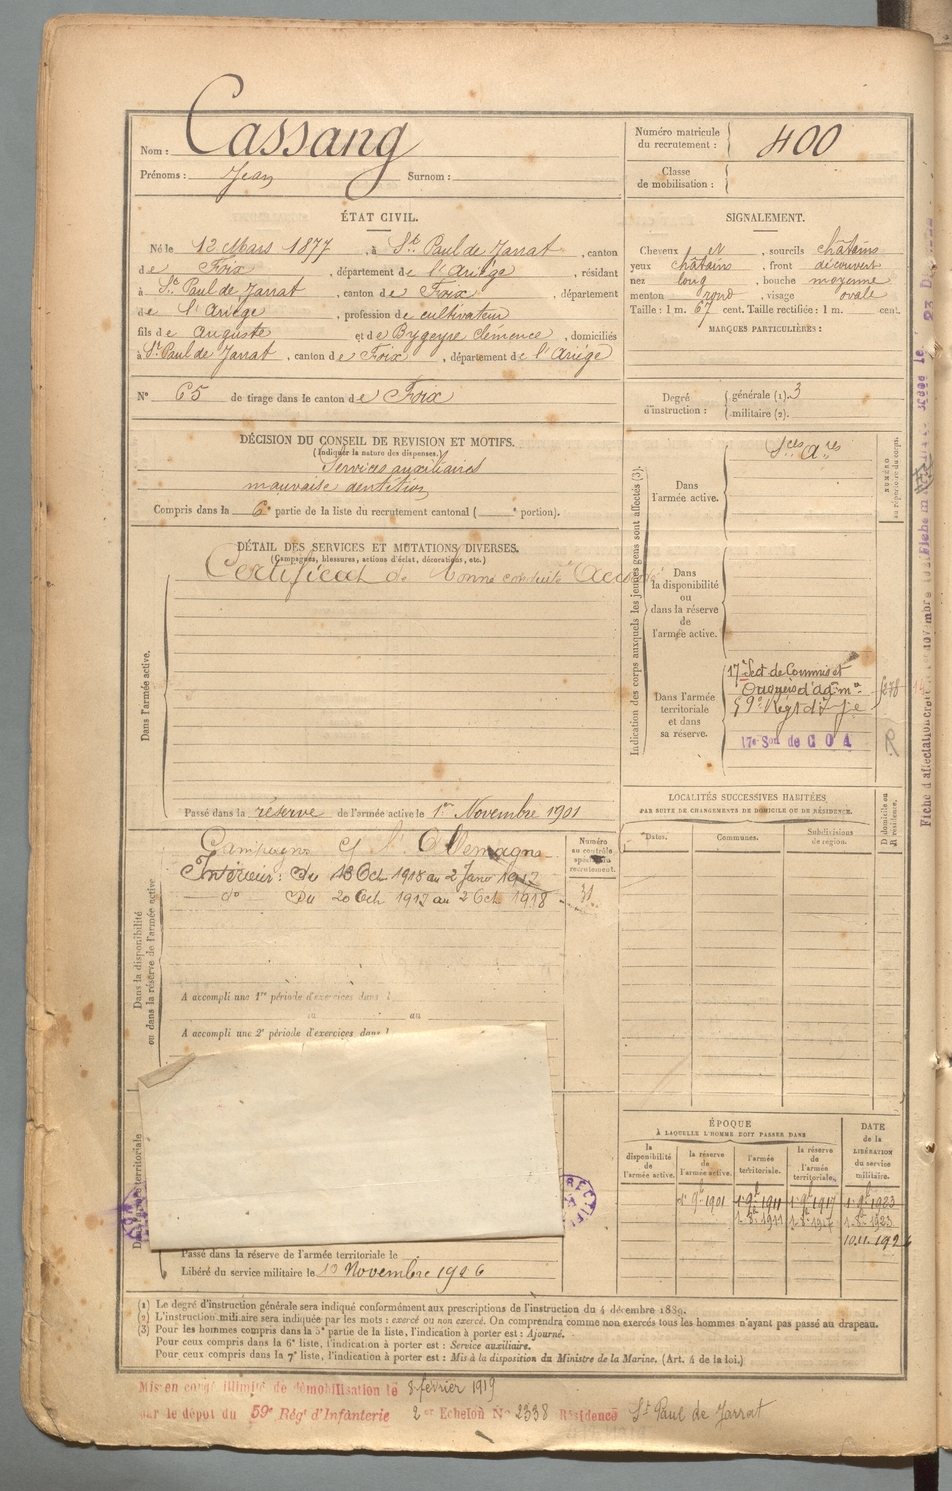 Nom : Cassang
Prénoms : Jean Surnom :
Numéro matricule du recrutement : 400
Classe de mobilisation :
ÉTAT CIVIL.
Né le 12 Mars 1877, à St. Paul de Jarrat, canton
de Foix, département de l'Ariège, résidant
à St. Paul de Jarrat, canton de Foix, département
de l'Ariège, profession de cultivateur
fils de Auguste et de Bygeyre Clémence, domiciliés
à St. Paul de Jarrat, canton de Foix, département de l'Ariège
N° 65 de tirage dans le canton de Foix
SIGNALEMENT.
Cheveux et, sourcils châtains
yeux châtains, front découvert
nez long, bouche moyenne
menton rond, visage ovale
Taille : 1 m. 67 cent. Taille rectifiée : 1 m. cent.
MARQUES PARTICULIÈRES :
Degré d'instruction : générale (1). 3
militaire (2).
DÉCISION DU CONSEIL DE REVISION ET MOTIFS.
(Indiquer la nature des dispenses.)
Services auxiliaires
mauvaise dentition
Compris dans la 6e partie de la liste du recrutement cantonal ( e portion).
DÉTAIL DES SERVICES ET MUTATIONS DIVERSES.
(Campagnes, blessures, actions d'éclat, décorations, etc.)
Certificat de bonne conduite Accordé
Dans l'armée active.
Passé dans la réserve de l'armée active le 1er Novembre 1901
Indication des corps auxquels les jeunes gens sont affectés (3).
Dans l'armée active.
Sces Ares
Dans la disponibilité ou dans la réserve de l'armée active.
Dans l'armée territoriale et dans sa réserve.
17e Sect de Commis et
Ouvriers d'adm on
59e Régt d'Ifie
17e Son de COA
NUMÉRO au répertoire du corps.
LOCALITÉS SUCCESSIVES HABITÉES
PAR SUITE DE CHANGEMENTS DE DOMICILE OU DE RÉSIDENCE.
Dates. Communes. Subdivisions de région. D domicile ou R résidence.
Dans la disponibilité ou dans la réserve de l'armée active
Campagne C/ l'Allemagne
Intérieur : Du 13 Oct 1915 au 2 Janv 1917
do Du 20 Oct 1917 au 2 Oct 1918
Numéro au contrôle spécial du recrutement.
31
A accompli une 1re période d'exercices dans l
au
A accompli une 2e période d'exercices dans l
Passé dans la réserve de l'armée territoriale le
Libéré du service militaire le 10 Novembre 1926
ÉPOQUE
À LAQUELLE L'HOMME DOIT PASSER DANS
la disponibilité de l'armée active. la réserve de l'armée active. l'armée territoriale. la réserve de l'armée territoriale.
DATE de la LIBÉRATION du service militaire.
1er 9bre 1901 1er 9bre 1911 1er 9bre 1917 1er 9bre 1923
1. 8bre 1911 1. 8bre 1917 1. 8bre 1923
10.11.1926
(1) Le degré d'instruction générale sera indiqué conformément aux prescriptions de l'instruction du 4 décembre 1889.
(2) L'instruction militaire sera indiquée par les mots : exercé ou non exercé. On comprendra comme non exercés tous les hommes n'ayant pas passé au drapeau.
(3) Pour les hommes compris dans la 5e partie de la liste, l'indication à porter est : Ajourné.
Pour ceux compris dans la 6e liste, l'indication à porter est : Service auxiliaire.
Pour ceux compris dans la 7e liste, l'indication à porter est : Mis à la disposition du Ministre de la Marine. (Art. 4 de la loi.)
Mis en congé illimité de démobilisation le 8 février 1919
par le dépôt du 59e Régt d'Infanterie 2er Echelon N° 2338 Résidence St Paul de Jarrat